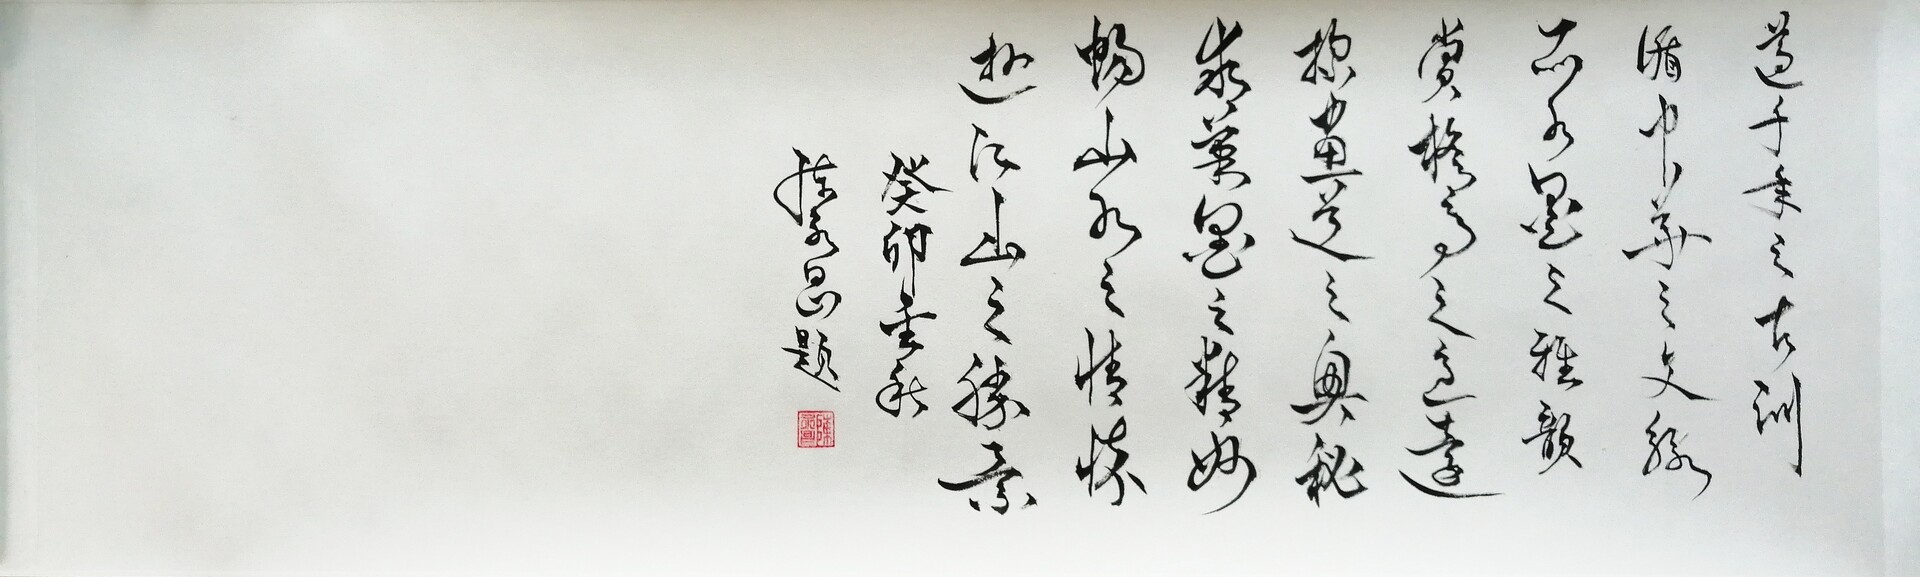 遵千年之古训
循中华之文脉
品水墨之雅韵
赏格高之意
探畫道之奥秘
求笔墨之精妙
畅山水之情怀
遊江山之勝景
癸卯金秋
陈永昌题